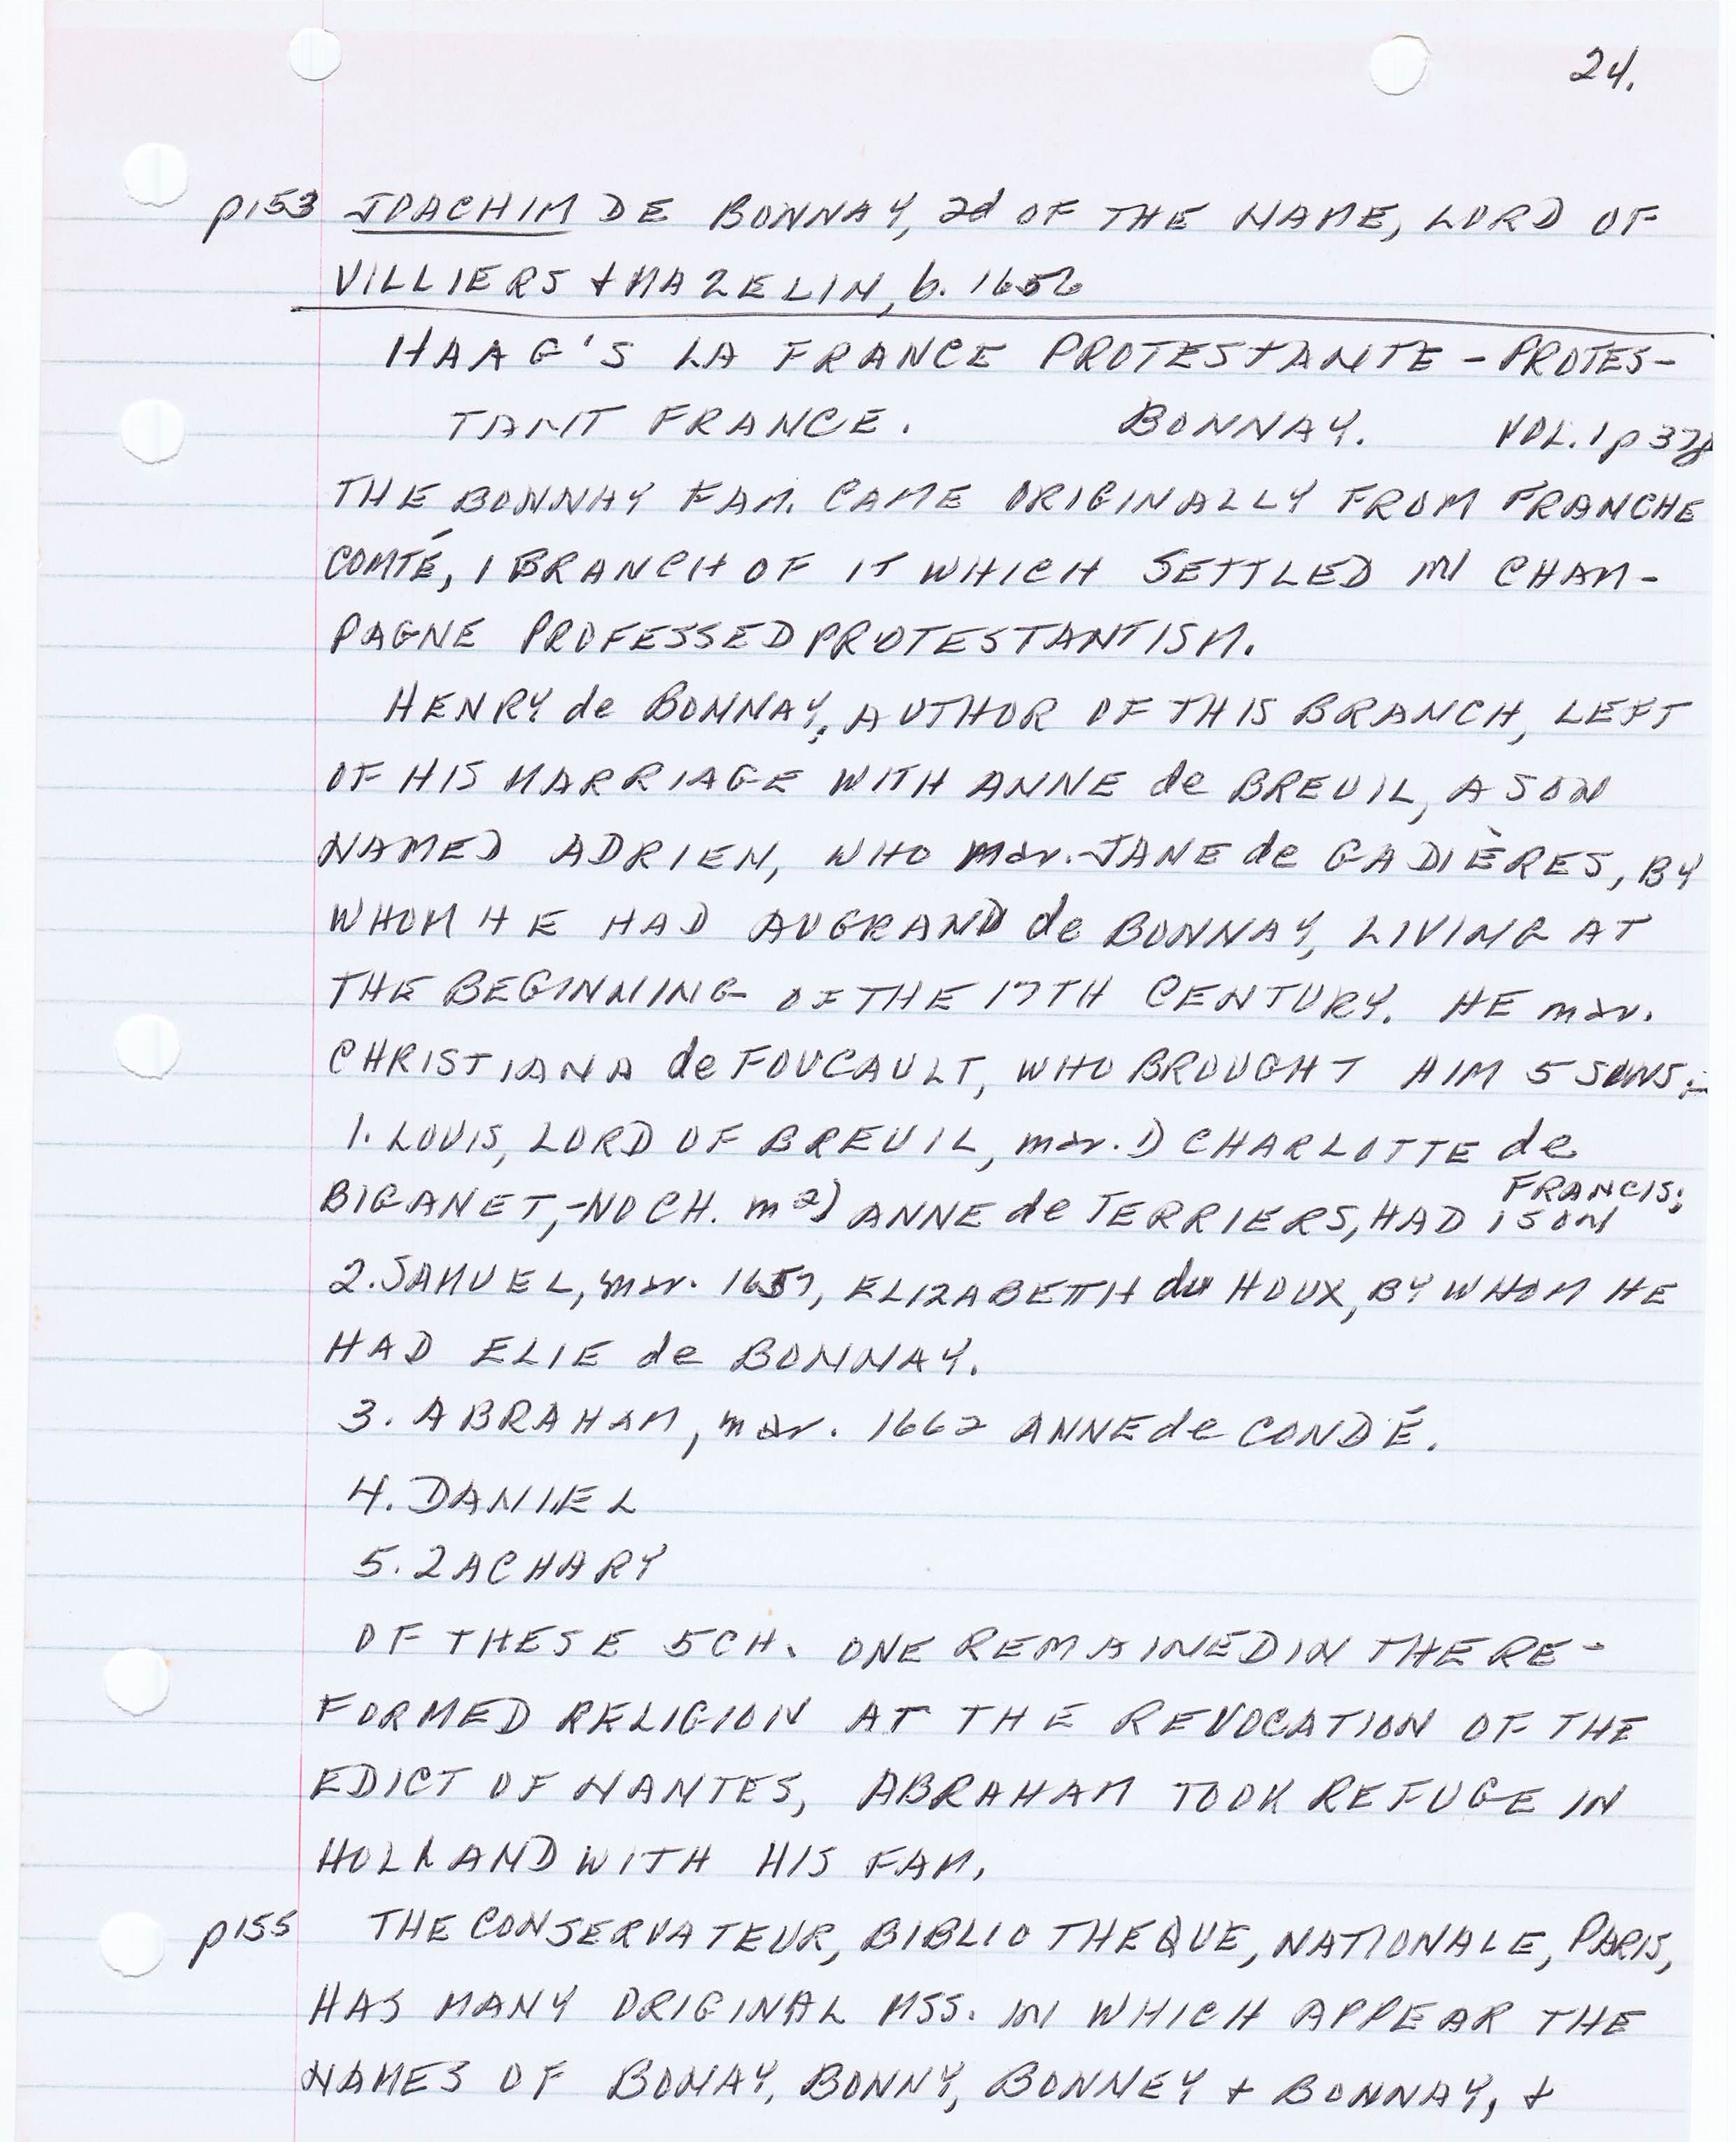 24.
p153 JOACHIM DE BONNAY, 2d OF THE NAME, LORD OF
VILLIERS + MAZELIN, b. 1656
HAAG'S LA FRANCE PROTESTANTE - PROTES-
TANT FRANCE. BONNAY. VOL. 1 p
THE BONNAY FAM. CAME ORIGINALLY FROM FRANCHE
COMTÉ, 1 BRANCH OF IT WHICH SETTLED IN CHAM-
PAGNE PROFESSED PROTESTANTISM.
HENRY de BONNAY, AUTHOR OF THIS BRANCH, LEFT
OF HIS MARRIAGE WITH ANNE de BREUIL, A SON
NAMED ADRIEN, WHO mar. JANE de GADIÈRES, BY
WHOM HE HAD AUGRAND de BONNAY, LIVING AT
THE BEGINNING OF THE 17TH CENTURY. HE mar.
CHRISTIANA de FOUCAULT, WHO BROUGHT HIM 5 SONS:-
1. LOUIS, LORD OF BREUIL, mar. 1) CHARLOTTE de
BIGANET,-NO CH. m 2) ANNE de TERRIERS, HAD 1 SON FRANCIS;
2. SAMUEL, mar. 1657, ELIZABETH du HOUX, BY WHOM HE
HAD ELIE de BONNAY.
3. ABRAHAM, mar. 1662 ANNE de CONDÉ.
4. DANIEL
5. ZACHARY
OF THESE 5 CH. ONE REMAINED IN THE RE-
FORMED RELIGION AT THE REVOCATION OF THE
EDICT OF NANTES, ABRAHAM TOOK REFUGE IN
HOLLAND WITH HIS FAM.
p155 THE CONSERVATEUR, BIBLIOTHEQUE, NATIONALE, PARIS,
HAS MANY ORIGINAL MSS. IN WHICH APPEAR THE
NAMES OF BONAY, BONNY, BONNEY + BONNAY, +